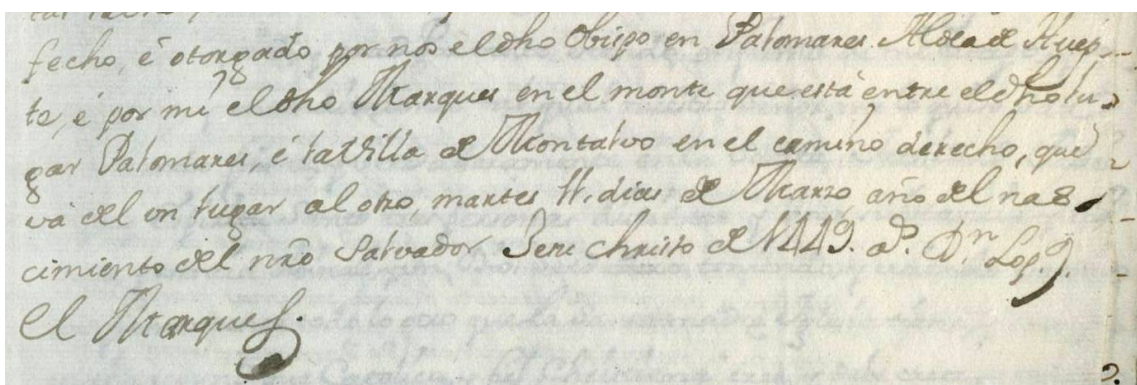 fecho, é otorgado por nos el dho Obispo en Palomares Aldea de Huep-
te, é por mi el dho Marques en el monte que está entre el dho lu-
gar Palomares, é la Villa de Montalvo en el camino derecho, que
vá del un lugar al otro martes 11. dias de Marzo año del nas-
cimiento del nro Salvador Jesu Christo de 1449. as. Dn. Lop.
El Marques.